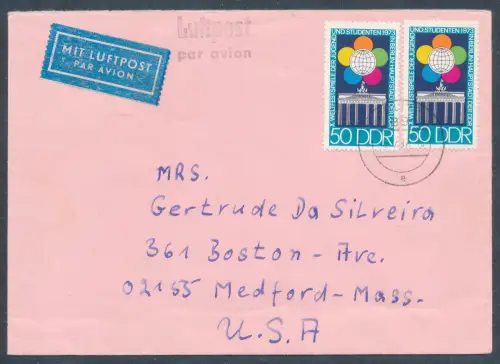 Luftpost
par avion
MIT LUFTPOST
PAR AVION
X. WELTFESTSPIELE DER JUGEND UND STUDENTEN 1973 IN BERLIN HAUPTSTADT DER DDR
50 DDR
X. WELTFESTSPIELE DER JUGEND UND STUDENTEN 1973 IN BERLIN HAUPTSTADT DER DDR
50 DDR
MRS.
Gertrude Da Silveira
361 Boston-Ave.
02155 Medford-Mass.
U.S.A